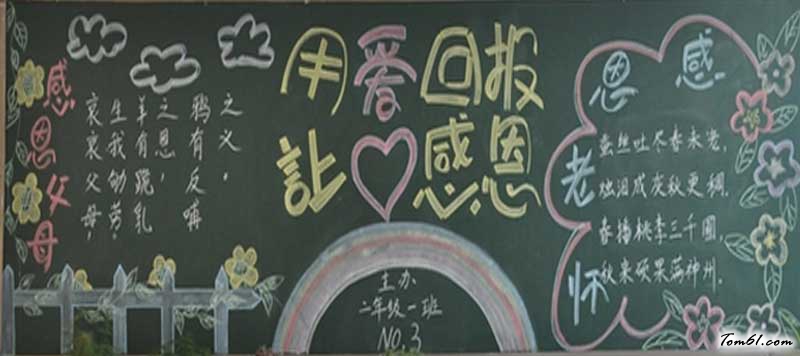 用爱回报
让感恩
感恩父母
哀哀父母,
生我劬劳,
羊有跪乳
之恩,
鸦有反哺
之义。
主办
二年级一班
NO.3
感恩
老师
蚕丝吐尽春未老,
烛泪成灰秋更稠.
春播桃李三千圃,
秋来硕果满神州.
Tom61.com